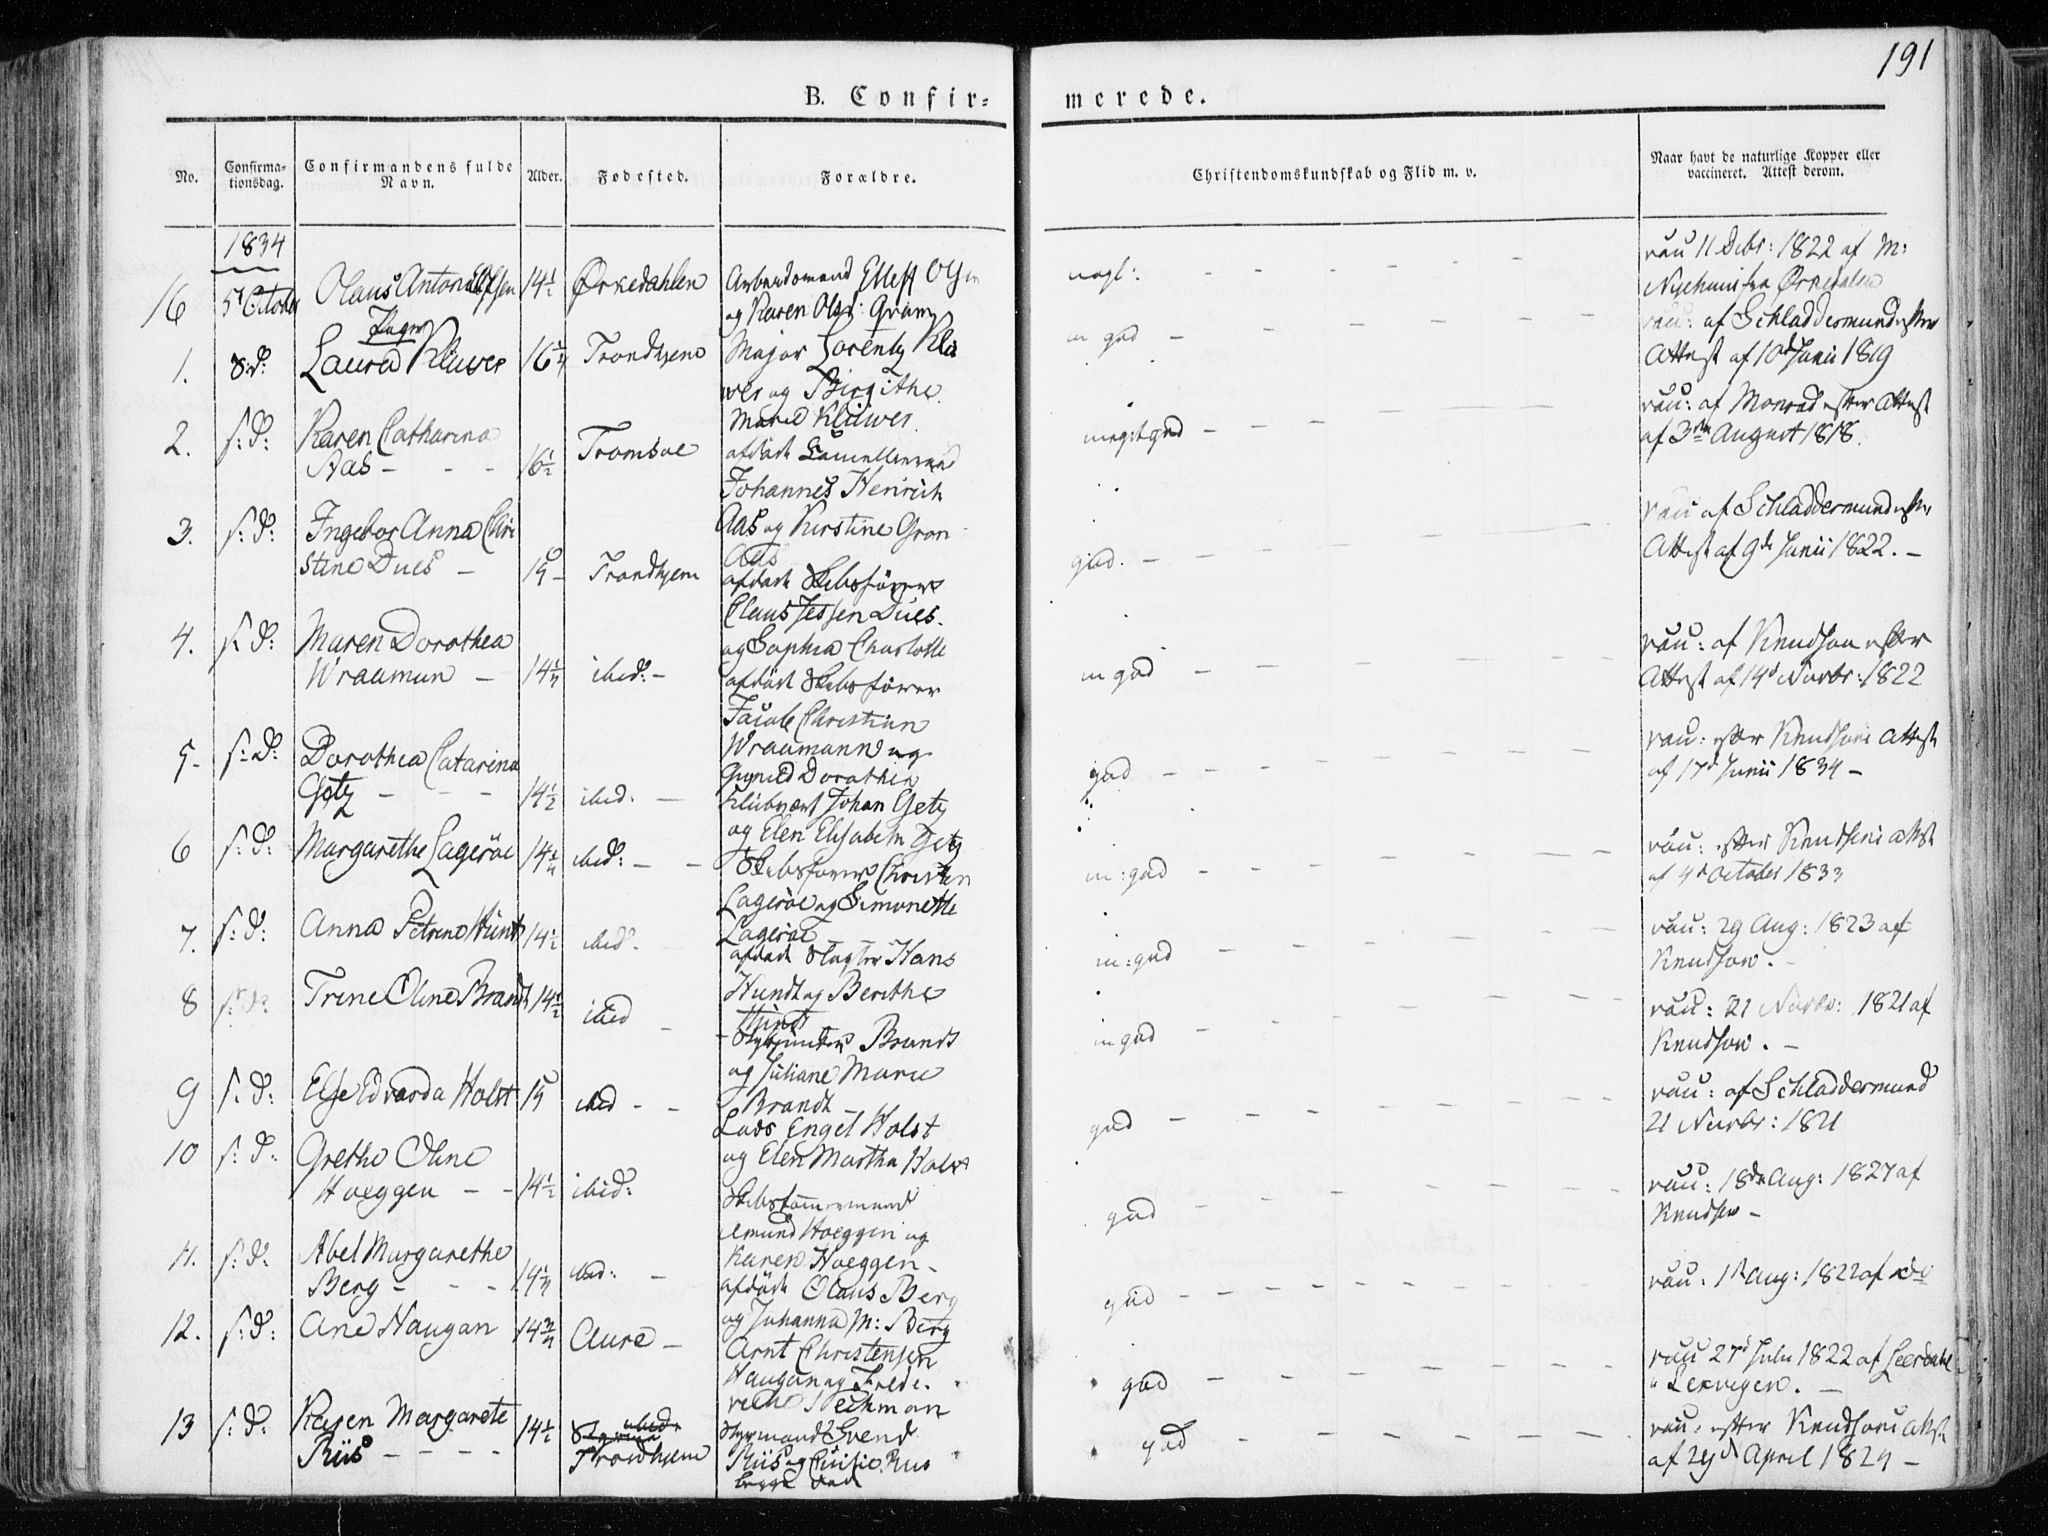 191
B. Confir-
merede.
No.
Confirma-
tionsdag.
Confirmandens fulde
Navn.
Alder.
Fødested.
Forældre.
Christendomskundskab og Flid m. v.
Naar havt de naturlige Kopper eller
vaccineret. Attest derom.
1834
16 5t October Olaus Anton 14½ Ørkedahlen Arbeidsmand Ellef Olsen
og Karen Olsd: Gram
vau 11 Debr: 1822 af M:
Ørkedalen
Piger
1. Laura Klüwer 16¼ Trondhjem Major Lorentz Klü
wer og Birgithe
Marie Klüwer.
m god -
vau: af Schladdermund efter
Attest af 10d Junii 1819
2. s: d: Karen Catharina
Aas - - - 16½ Tromsøe afdøde
Johannes Henrich
Aas og Kirstine Gron
Aas
meget god - - -
vau: af Monrad efter Attest
af 3die August 1818.
3. s: d: Ingebor Anna Chri
stine Dues - 19 - Trondhjem
afdøde Skibsfører
Claus Jessen Dues.
og Sophia Charlotte
god. - -
vau af Schladdermund efter
Attest af 9de Junii 1822. -
4. s: d: Maren Dorothea
Wraamun - 14¼ ibid: -
afdøde Skibsfører
Jacob Christian
Wraamann og
Dorothea
m god -
vau: af Knudson efter
Attest af 14d Novbr: 1822
5. s: d: Dorothea Catarina
Getz - - - 14½ ibid. -
Johan Getz
og Elen Elisabeth Getz
god - - -
vau: efter Knudsons Attest
af 17d Junii 1834 -
6 s: d: Margarethe Lagerøe 14¼ ibid: - -
Skibsfører Christen
Lagerøe og Simonette
Lagerøe
m: god - -
vau: efter Knudsons attest
af 4d October 1833
7. s: d: Anna Petrine Hünt 14½ ibid.
afdøde Slagter Hans
Hundt og Berithe
Hünt
m: god -
vau: 29 Aug: 1823 af
Knudson. -
8 s: d: Trine Oline Brandt 14½ ibid -
Brandt
og Juliane Marie
Brandt -
m god -
vau: 21 Novbr: 1821 af
Knudson. -
9 s: d: Else Edvarda Holst 15 ibid - -
Lars Engel Holst
og Elen Martha Holst
god - -
vau: af Schladdermund
21 Novbr: 1821
10 s: d: Grethe Oline
Hoeggen - - 14½ ibid:
Skibstømmermand
Hoeggen og
Karen Hoeggen -
god - -
vau: 18de Aug: 1827 af
Knudson -
11. s: d: Abel Margarethe
Berg - - - 14¼ ibid: -
afdøde Olaus Berg
og Johanna M: Berg
god - -
vau: 1t Aug: 1822 af do
12. s: d: Ane Haugan 14¾ Aure -
Arnt Christensen
Haugan og Frede-
god - -
vau 27d Julii 1822 af Leerdahl
13 s: d: Karen Margarete
Riis - - - - 14½ Trondhjem
Styrmand Svend
Riis og Cicilie Riis
begge død
god - -
vau: efter Knudsons attest
af 29d April 1829 -